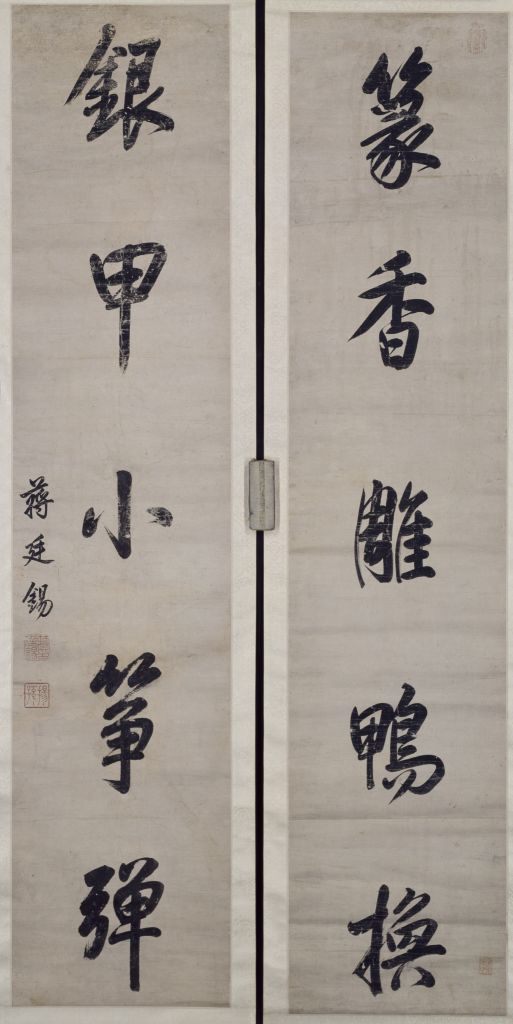 篆香雕鴨換
銀甲小箏彈
蔣廷錫